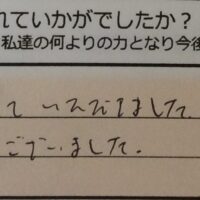 れていかがでしたか？
私達の何よりの力となり今後
て いただきました。
ございました。